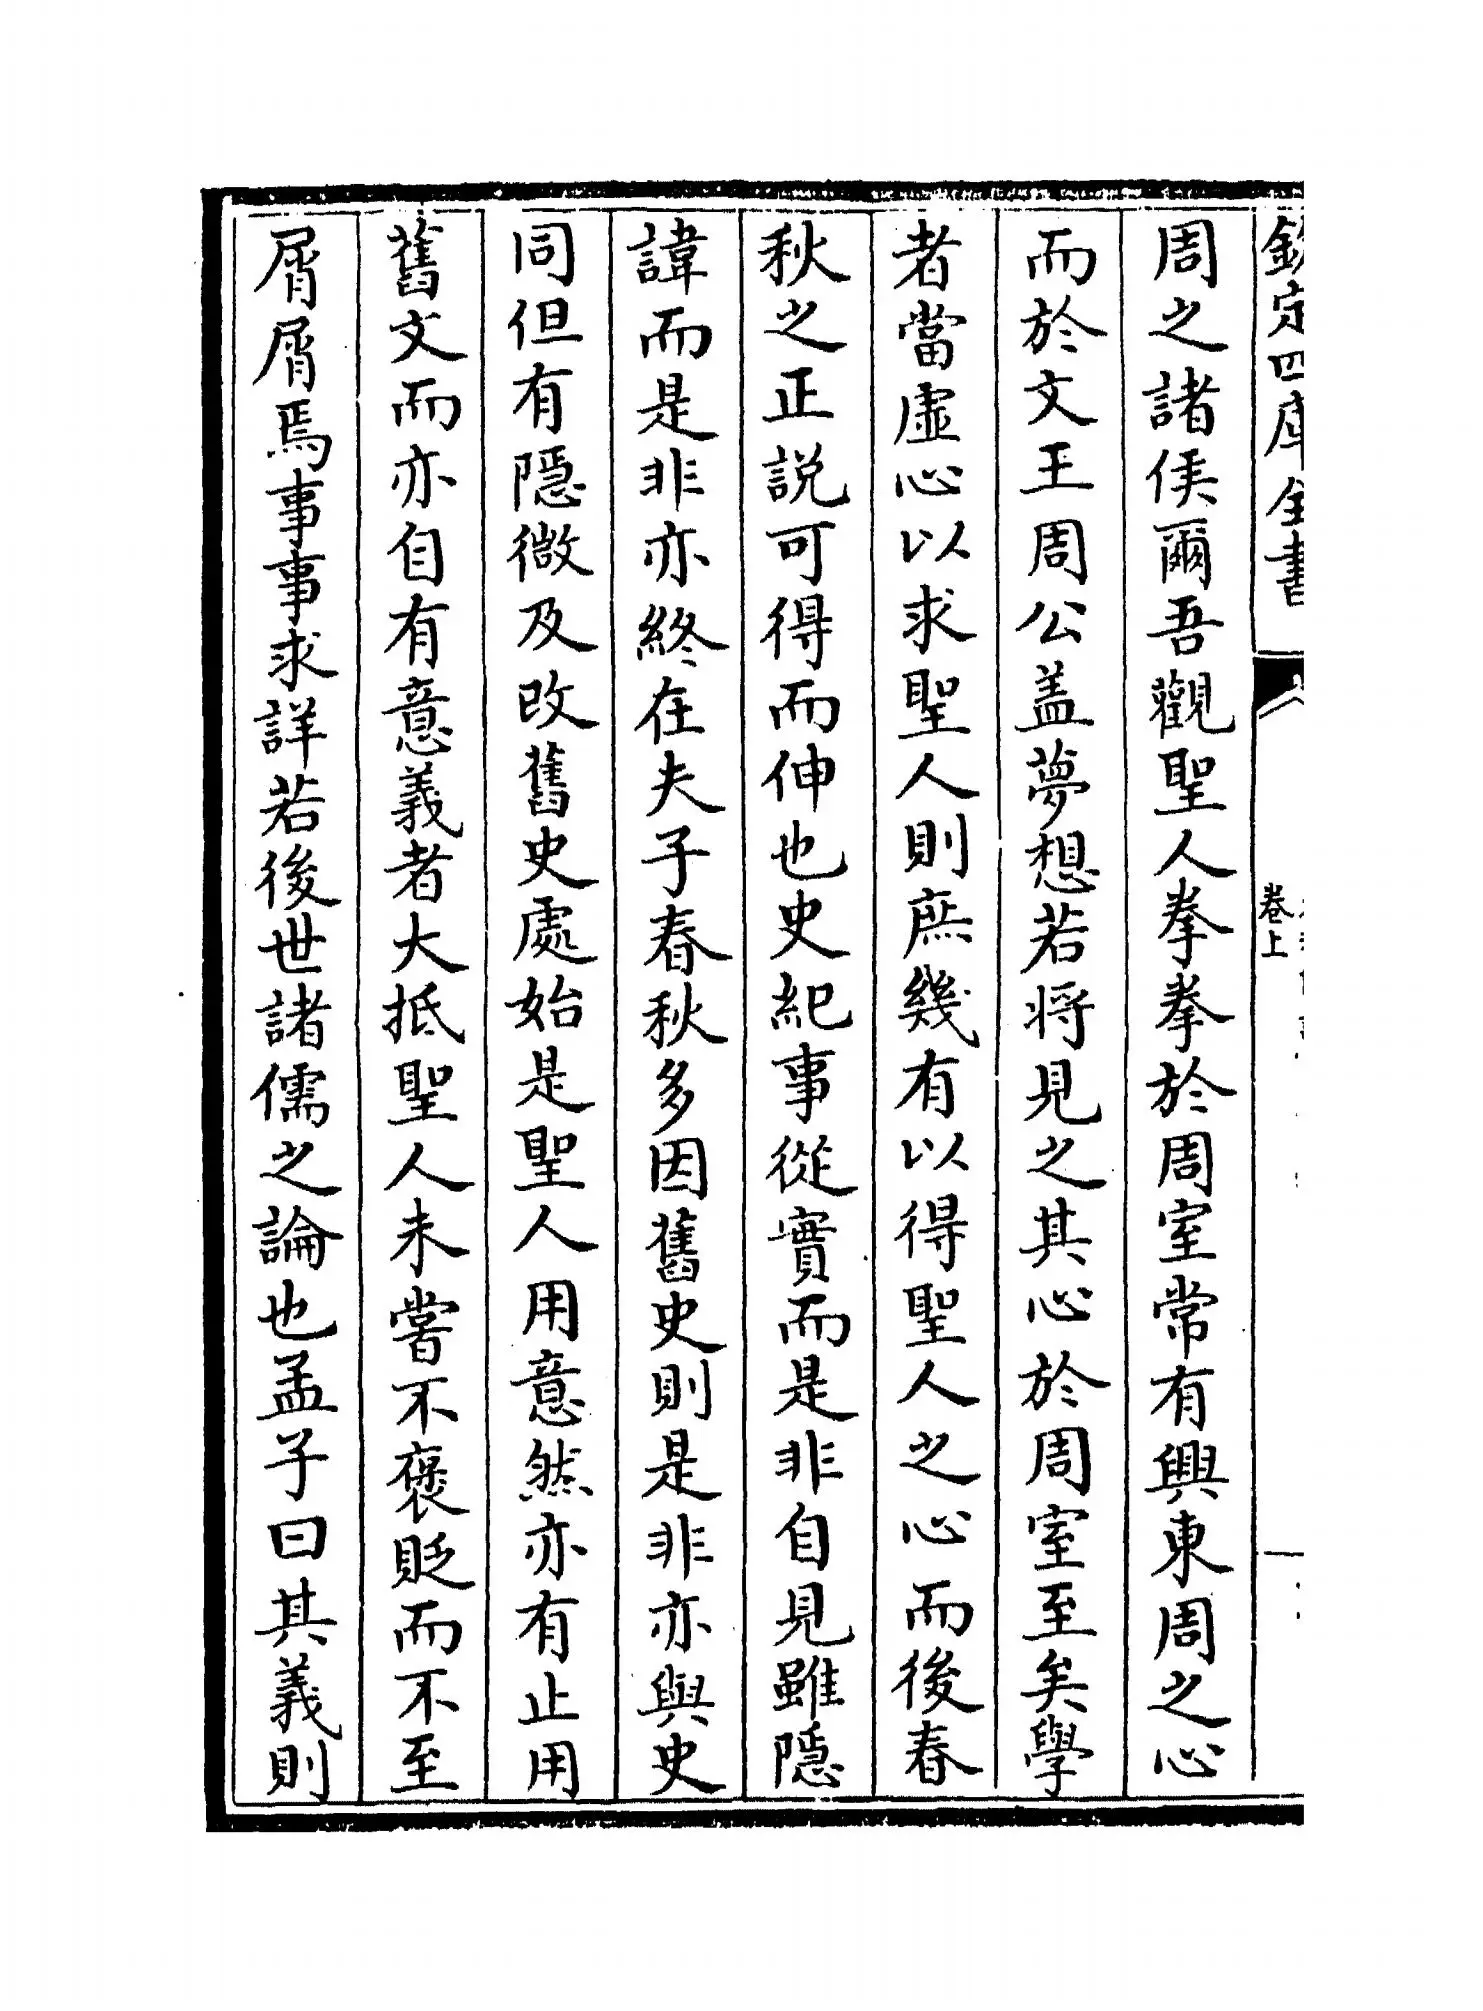 欽定四庫全書
卷上
周之諸侯爾吾觀聖人拳拳於周室常有興東周之心
而於文王周公盖夢想若将見之其心於周室至矣學
者當虚心以求聖人則庶幾有以得聖人之心而後春
秋之正説可得而伸也史紀事從實而是非自見雖隠
諱而是非亦終在夫子春秋多因舊史則是非亦與史
同但有隠微及改舊史處始是聖人用意然亦有止用
舊文而亦自有意義者大抵聖人未嘗不褒貶而不至
屑屑焉事事求詳若後世諸儒之論也孟子曰其義則